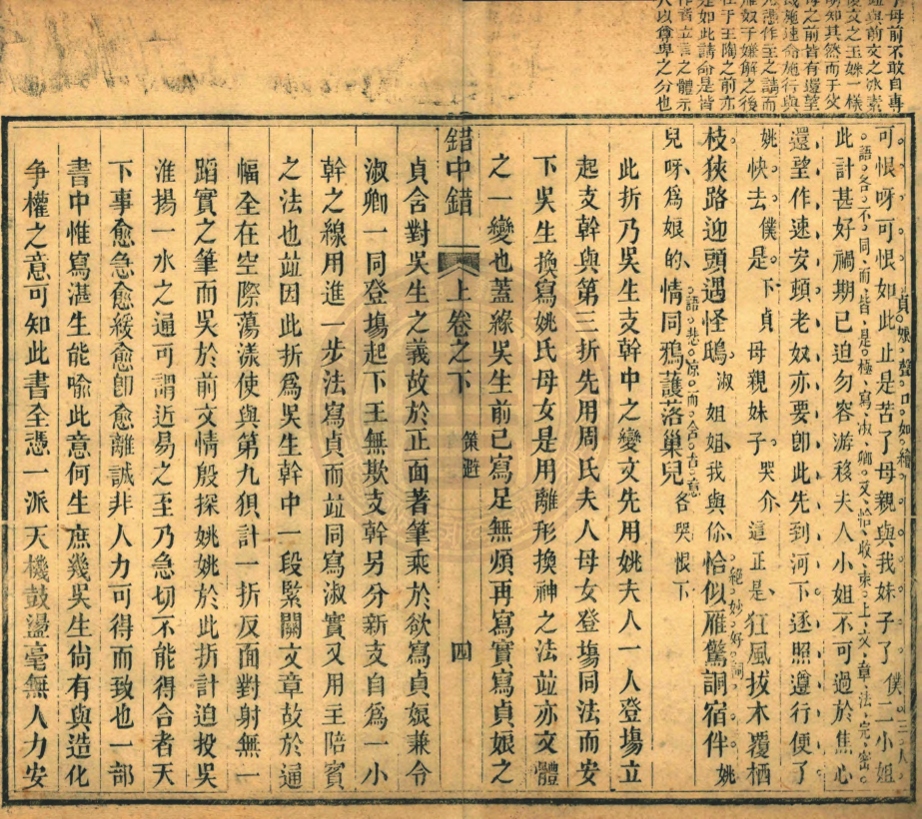 子母前不敢自專
與前文之冰素
後文之玉姝一樣
明知其然而于父
母之前皆有還望
施速命施行與
允憑作主之請而
雁奴子嫌解之後
在于王陶之前亦
是如此請命是皆
作者立言之體示
人以尊卑之分也
可恨呀可恨如此止是苦了母親與我妹子了僕二小姐
貞娘聲口如繪
以三人
語各不同而皆是極寫淑卿又恰收束上文章法完密
此計甚好禍期已迫勿容游移夫人小姐不可過於焦心
還望作速安頓老奴亦要卽此先到河下逐照遵行便了
姚快去僕是下貞母親妹子哭介這正是狂風拔木覆栖
枝狹路迎頭遇怪鴟淑姐姐我與你恰似雁驚詗宿伴姚
絕妙好詞
語悲凉而含吉意
兒呀爲娘的情同鴉護落巢兒各哭恨下
此折乃吳生支幹中之變文先用姚夫人一人登塲立
起支幹與第三折先用周氏夫人母女登塲同法而安
下吳生換寫姚氏母女是用離形換神之法並亦文體
之一變也蓋緣吳生前已寫足無煩再寫實寫貞娘之
錯中錯 上卷之下 策避 四
貞舍對吳生之義故於正面著筆乘於欲寫貞娘兼令
淑卿一同登塲起下王無欺支幹另分新支自爲一小
幹之線用進一步法寫貞而並同寫淑實又用主陪賓
之法也並因此折爲吳生幹中一段緊關文章故於通
幅全在空際蕩漾使與第九狽計一折反面對射無一
蹈實之筆而吳於前文情殷探姚姚於此折計迫投吳
淮揚一水之通可謂近易之至乃急切不能得合者天
下事愈急愈緩愈卽愈離誠非人力可得而致也一部
書中惟寫湛生能喩此意何生庶幾吳生尙有與造化
争權之意可知此書全憑一派天機鼓盪毫無人力安